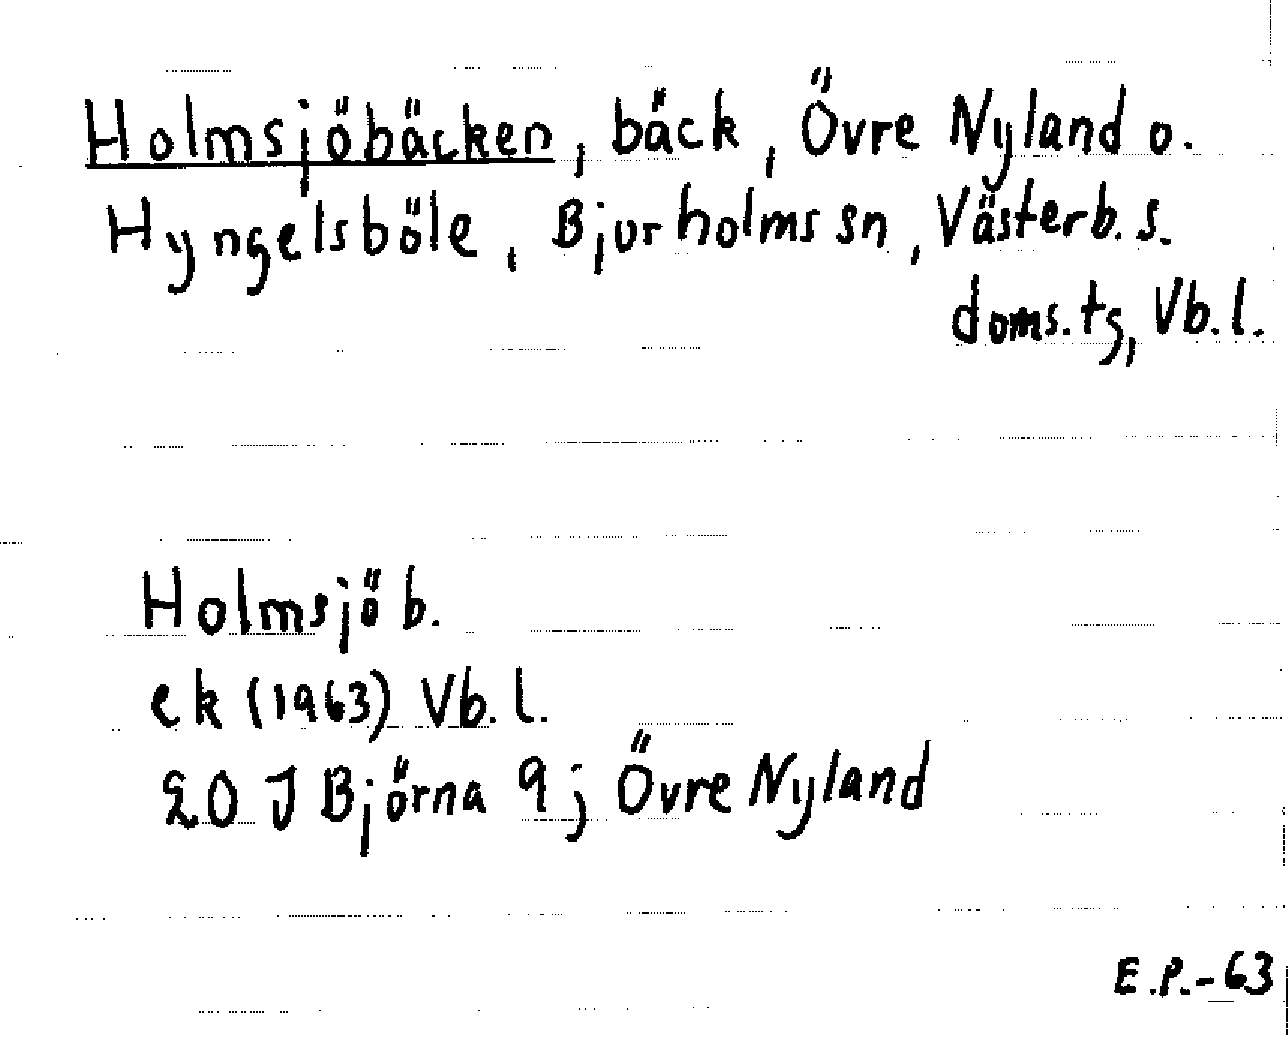 Holmsjöbäcken, bäck, Övre Nyland o.
Hyngelsböle, Bjurholms sn, Västerb. s.
doms. tg, Vb. l.
Holmsjö b.
ek (1963) Vb. l.
20 J Björna 9 j Övre Nyland
E.P.-63